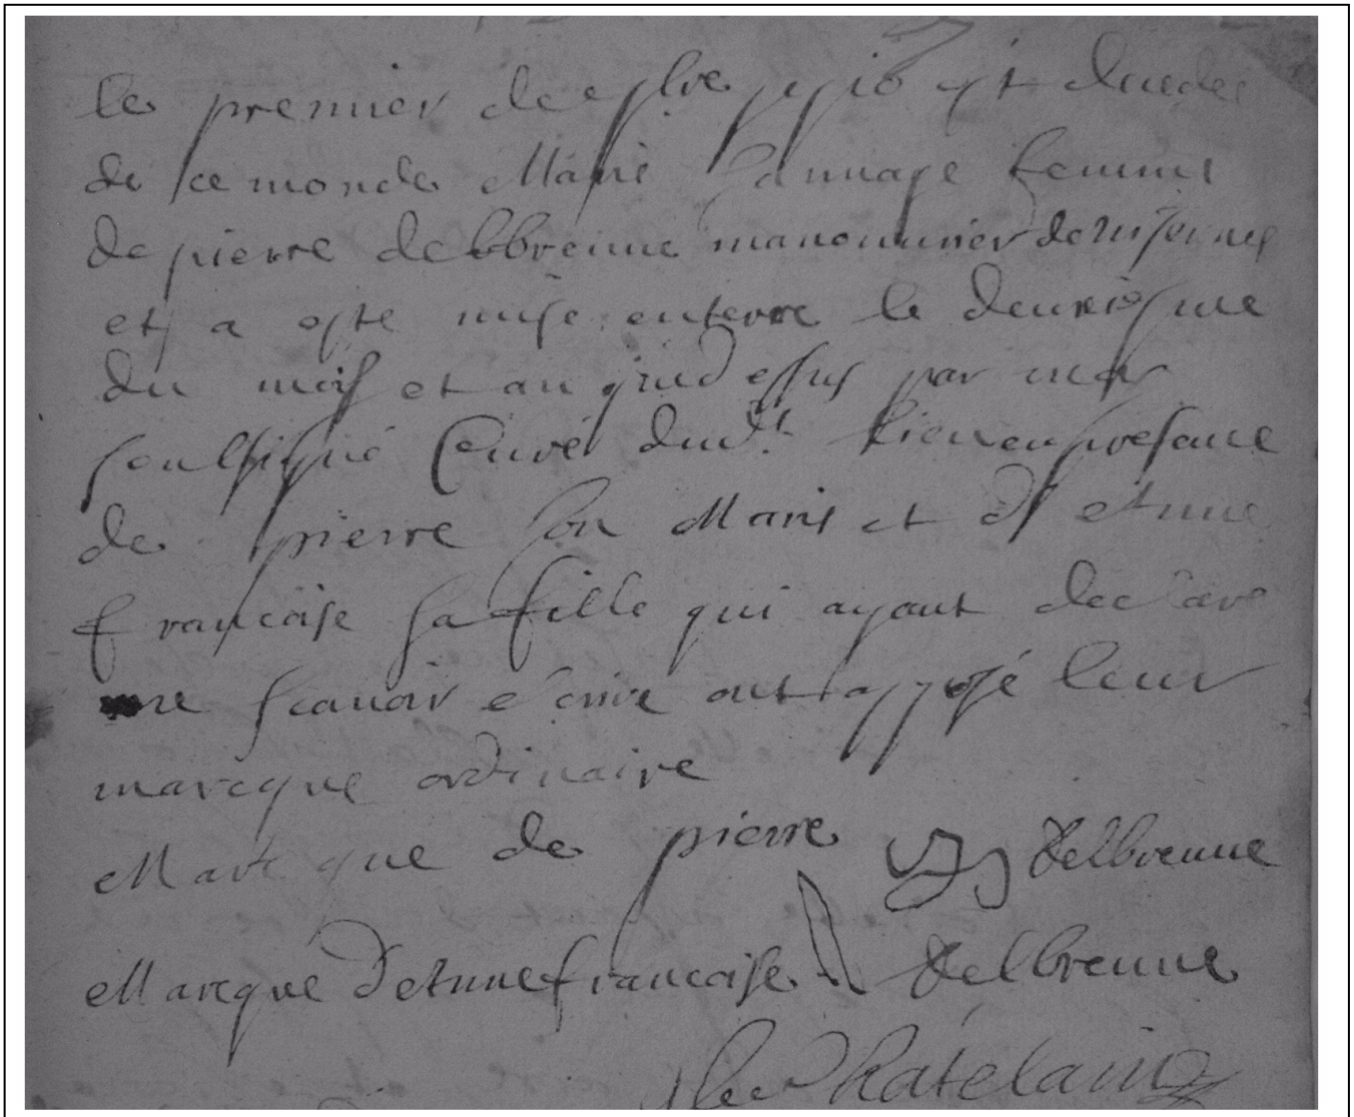 le premier de 1710 est deceder
de ce monde Marie femme
de pierre delbrenne manouvrier de
et a este mise enterre le deuxiesme
du mois et an que dessus par moy
soulsigné Curé dudt lieu en presence
de pierre son Maris et d'
francoise sa fille qui ayant declare
ne scauoir ecrire ont apposé leur
marcque ordinaire
Marcque de pierre delbrenne
Marcque francoise delbrenne